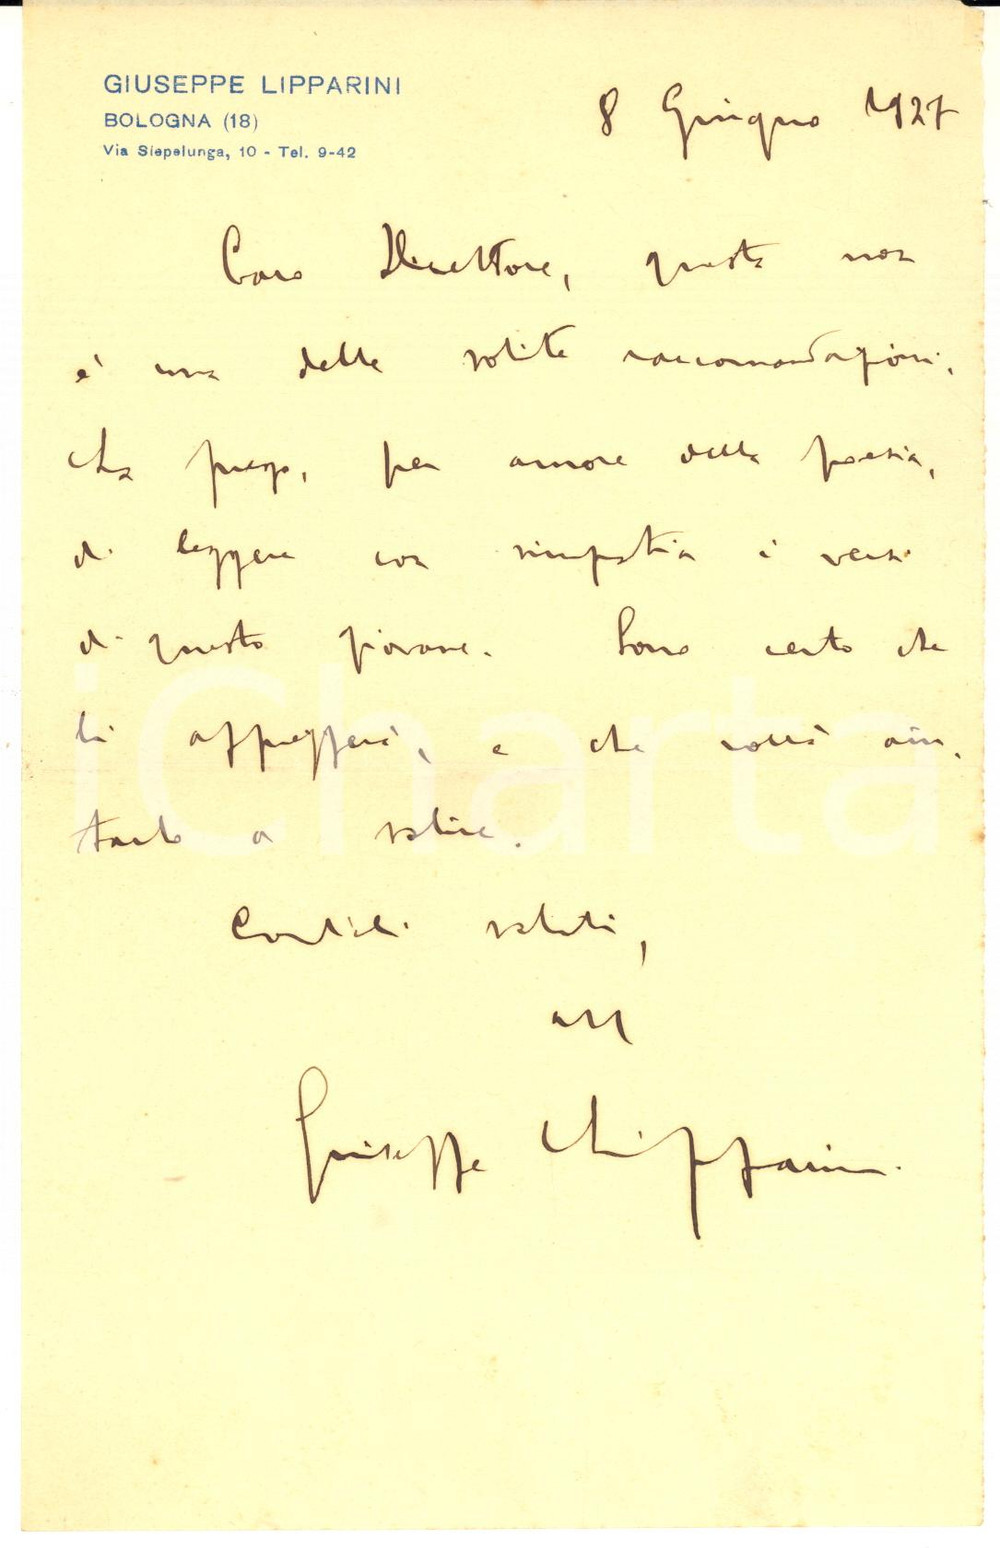 GIUSEPPE LIPPARINI
BOLOGNA (18)
Via Siepelunga, 10 - Tel. 9-42
8 Giugno 1927
Caro Direttore, questa non
è una delle solite raccomandazioni.
La prego, per amore della poesia,
di leggere con simpatia i versi
di questo giovane. Sono certo che
li apprezzerà, e che vorrà aiu-
tarlo a salire.
Cordiali saluti,
aff
Giuseppe Lipparini.
iCharta